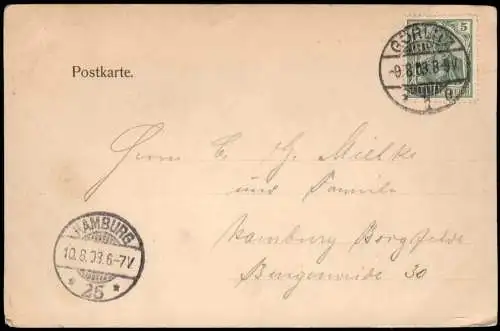 5
GÖRLITZ
-9.8.03.8-9V.
* 1 g
Postkarte.
Herrn C. G. Mielke
und Familie
Hamburg Borgfelde
Bürgerweide 30
HAMBURG
10.8.03.6-7V
* 25 *